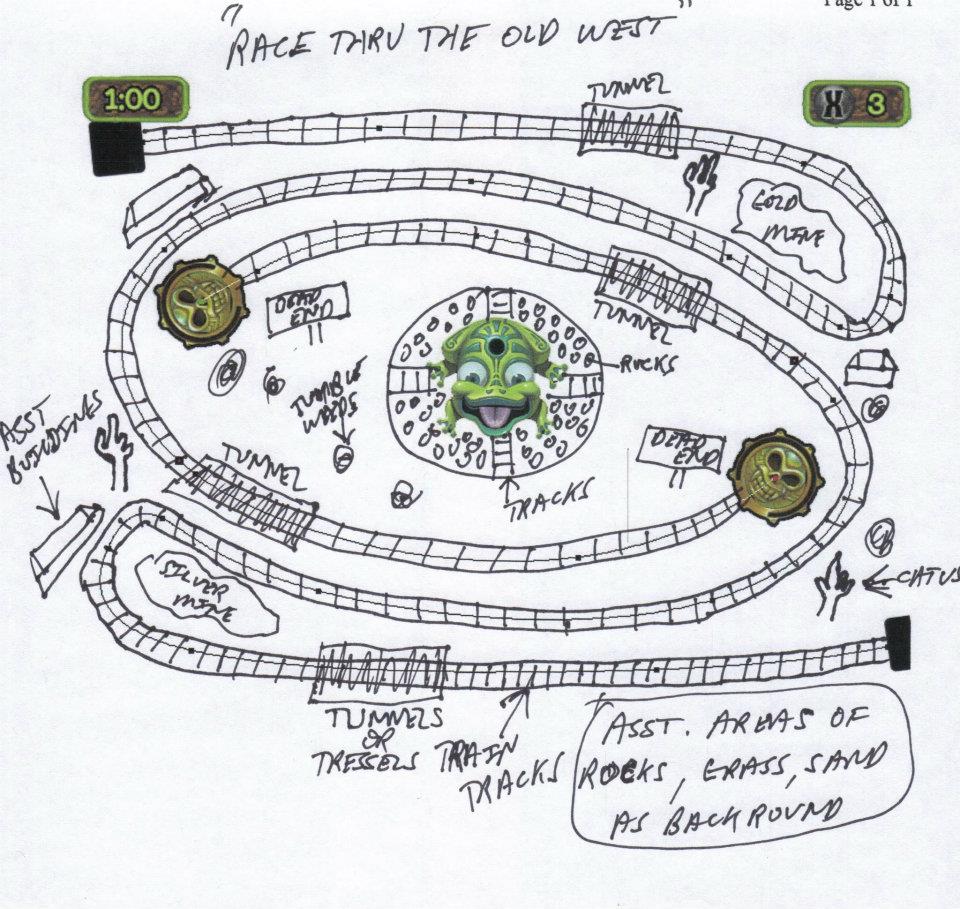 Page 1 of 1
"RACE THRU THE OLD WEST"
1:00
TUNNEL
X 3
GOLD
MINE
DEAD
END
TUNNEL
ROCKS
TUMBLE
WEEDS
ASST
BUILDINGS
DEAD
END
TUNNEL
TRACKS
SILVER
MINE
CATUS
TUNNELS
OR
TRESSELS
TRAIN
TRACKS
ASST. AREAS OF
ROCKS, GRASS, SAND
AS BACKROUND